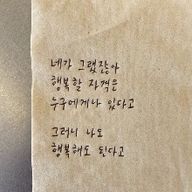 네가 그랬잖아
행복할 자격은
누구에게나 있다고
그러니 나도
행복해도 된다고